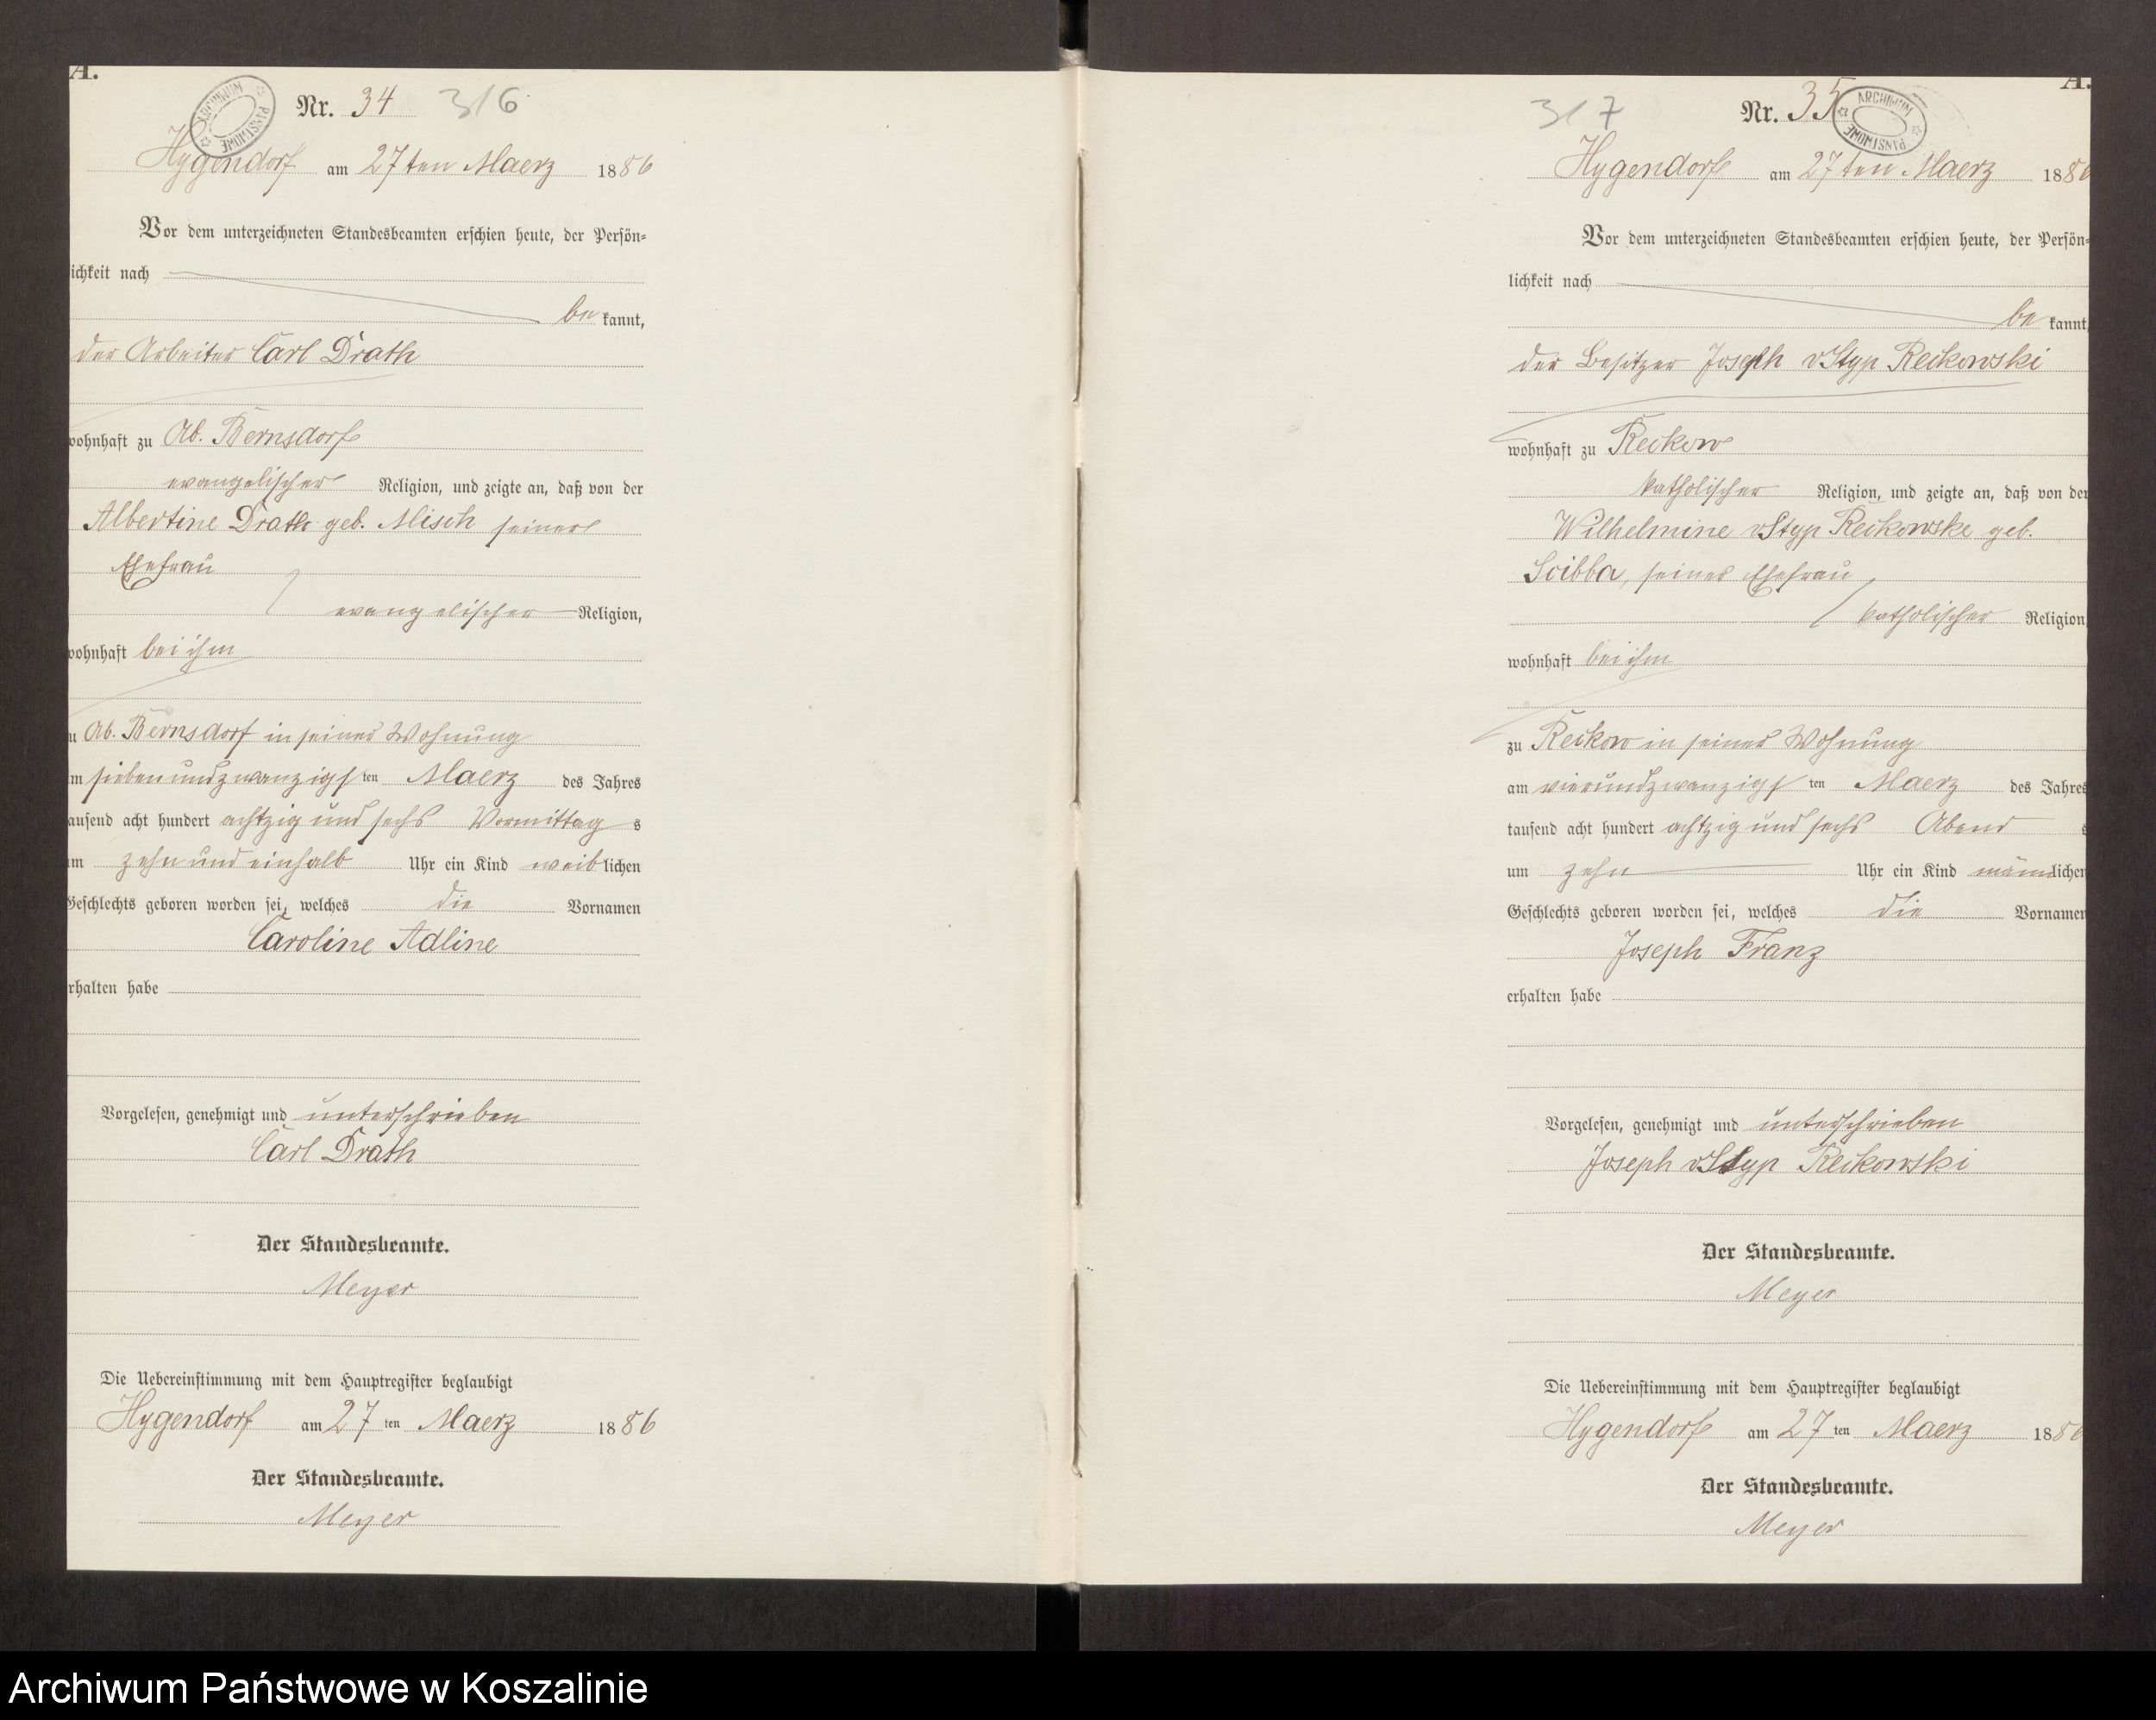 A.
ARCHIWUM PAŃSTWOWE
Nr. 34 316
Hygendorf am 27ten Maerz 1886
Vor dem unterzeichneten Standesbeamten erschien heute, der Persön-
lichkeit nach
be kannt,
der Arbeiter Carl Drath
wohnhaft zu Ab. Bernsdorf
evangelischer Religion, und zeigte an, daß von der
Albertine Drath geb. Misch seiner
Ehefrau
evangelischer Religion,
wohnhaft bei ihm
zu Ab. Bernsdorf in seiner Wohnung
am siebenundzwanzigsten Maerz des Jahres
tausend acht hundert achtzig und sechs Vormittags
um zehn und einhalb Uhr ein Kind weiblichen
Geschlechts geboren worden sei, welches die Vornamen
Caroline Adline
erhalten habe
Vorgelesen, genehmigt und unterschrieben
Carl Drath
Der Standesbeamte.
Meyer
Die Uebereinstimmung mit dem Hauptregister beglaubigt
Hygendorf am 27 ten Maerz 1886
Der Standesbeamte.
Meyer
A.
317 Nr. 35
ARCHIWUM PAŃSTWOWE
Hygendorf am 27ten Maerz 1886
Vor dem unterzeichneten Standesbeamten erschien heute, der Persön-
lichkeit nach
be kannt,
der Besitzer Joseph v Styp Reikowski
wohnhaft zu Reckow
katholischer Religion, und zeigte an, daß von der
Wilhelmine v Styp Reikowske geb.
Scibba, seiner Ehefrau
katholischer Religion,
wohnhaft bei ihm
zu Reckow in seiner Wohnung
am vierundzwanzigsten Maerz des Jahres
tausend acht hundert achtzig und sechs Abend s
um zehn Uhr ein Kind männlichen
Geschlechts geboren worden sei, welches die Vornamen
Joseph Franz
erhalten habe
Vorgelesen, genehmigt und unterschrieben
Joseph v Styp Reikowski
Der Standesbeamte.
Meyer
Die Uebereinstimmung mit dem Hauptregister beglaubigt
Hygendorf am 27 ten Maerz 1886
Der Standesbeamte.
Meyer
Archiwum Państwowe w Koszalinie